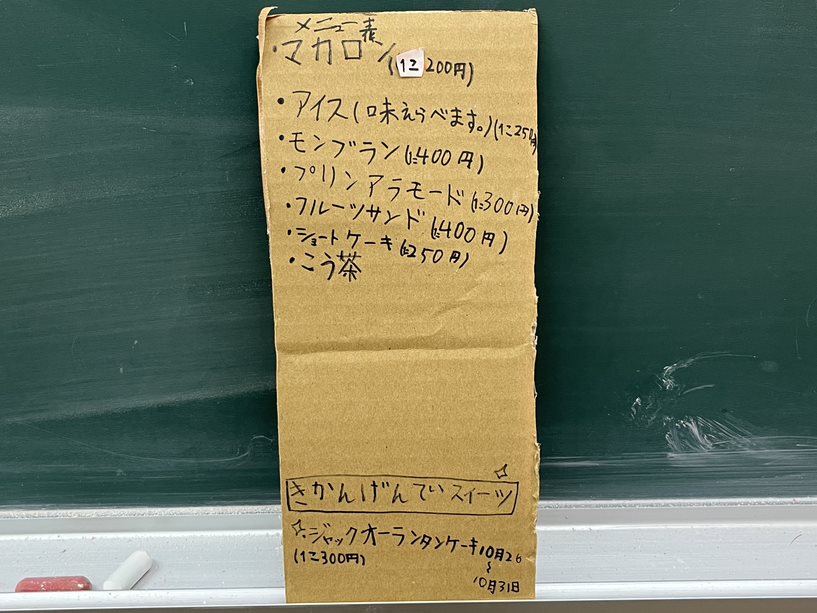 メニュー表
・マカロン(1こ200円)
・アイス(味えらべます。)(1こ250円)
・モンブラン(1こ400円)
・プリンアラモード(1こ300円)
・フルーツサンド(1こ400円)
・ショートケーキ(1こ250円)
・こう茶
きかんげんていスイーツ
・ジャックオーランタンケーキ10月26
(1こ300円)
〜
10月31日